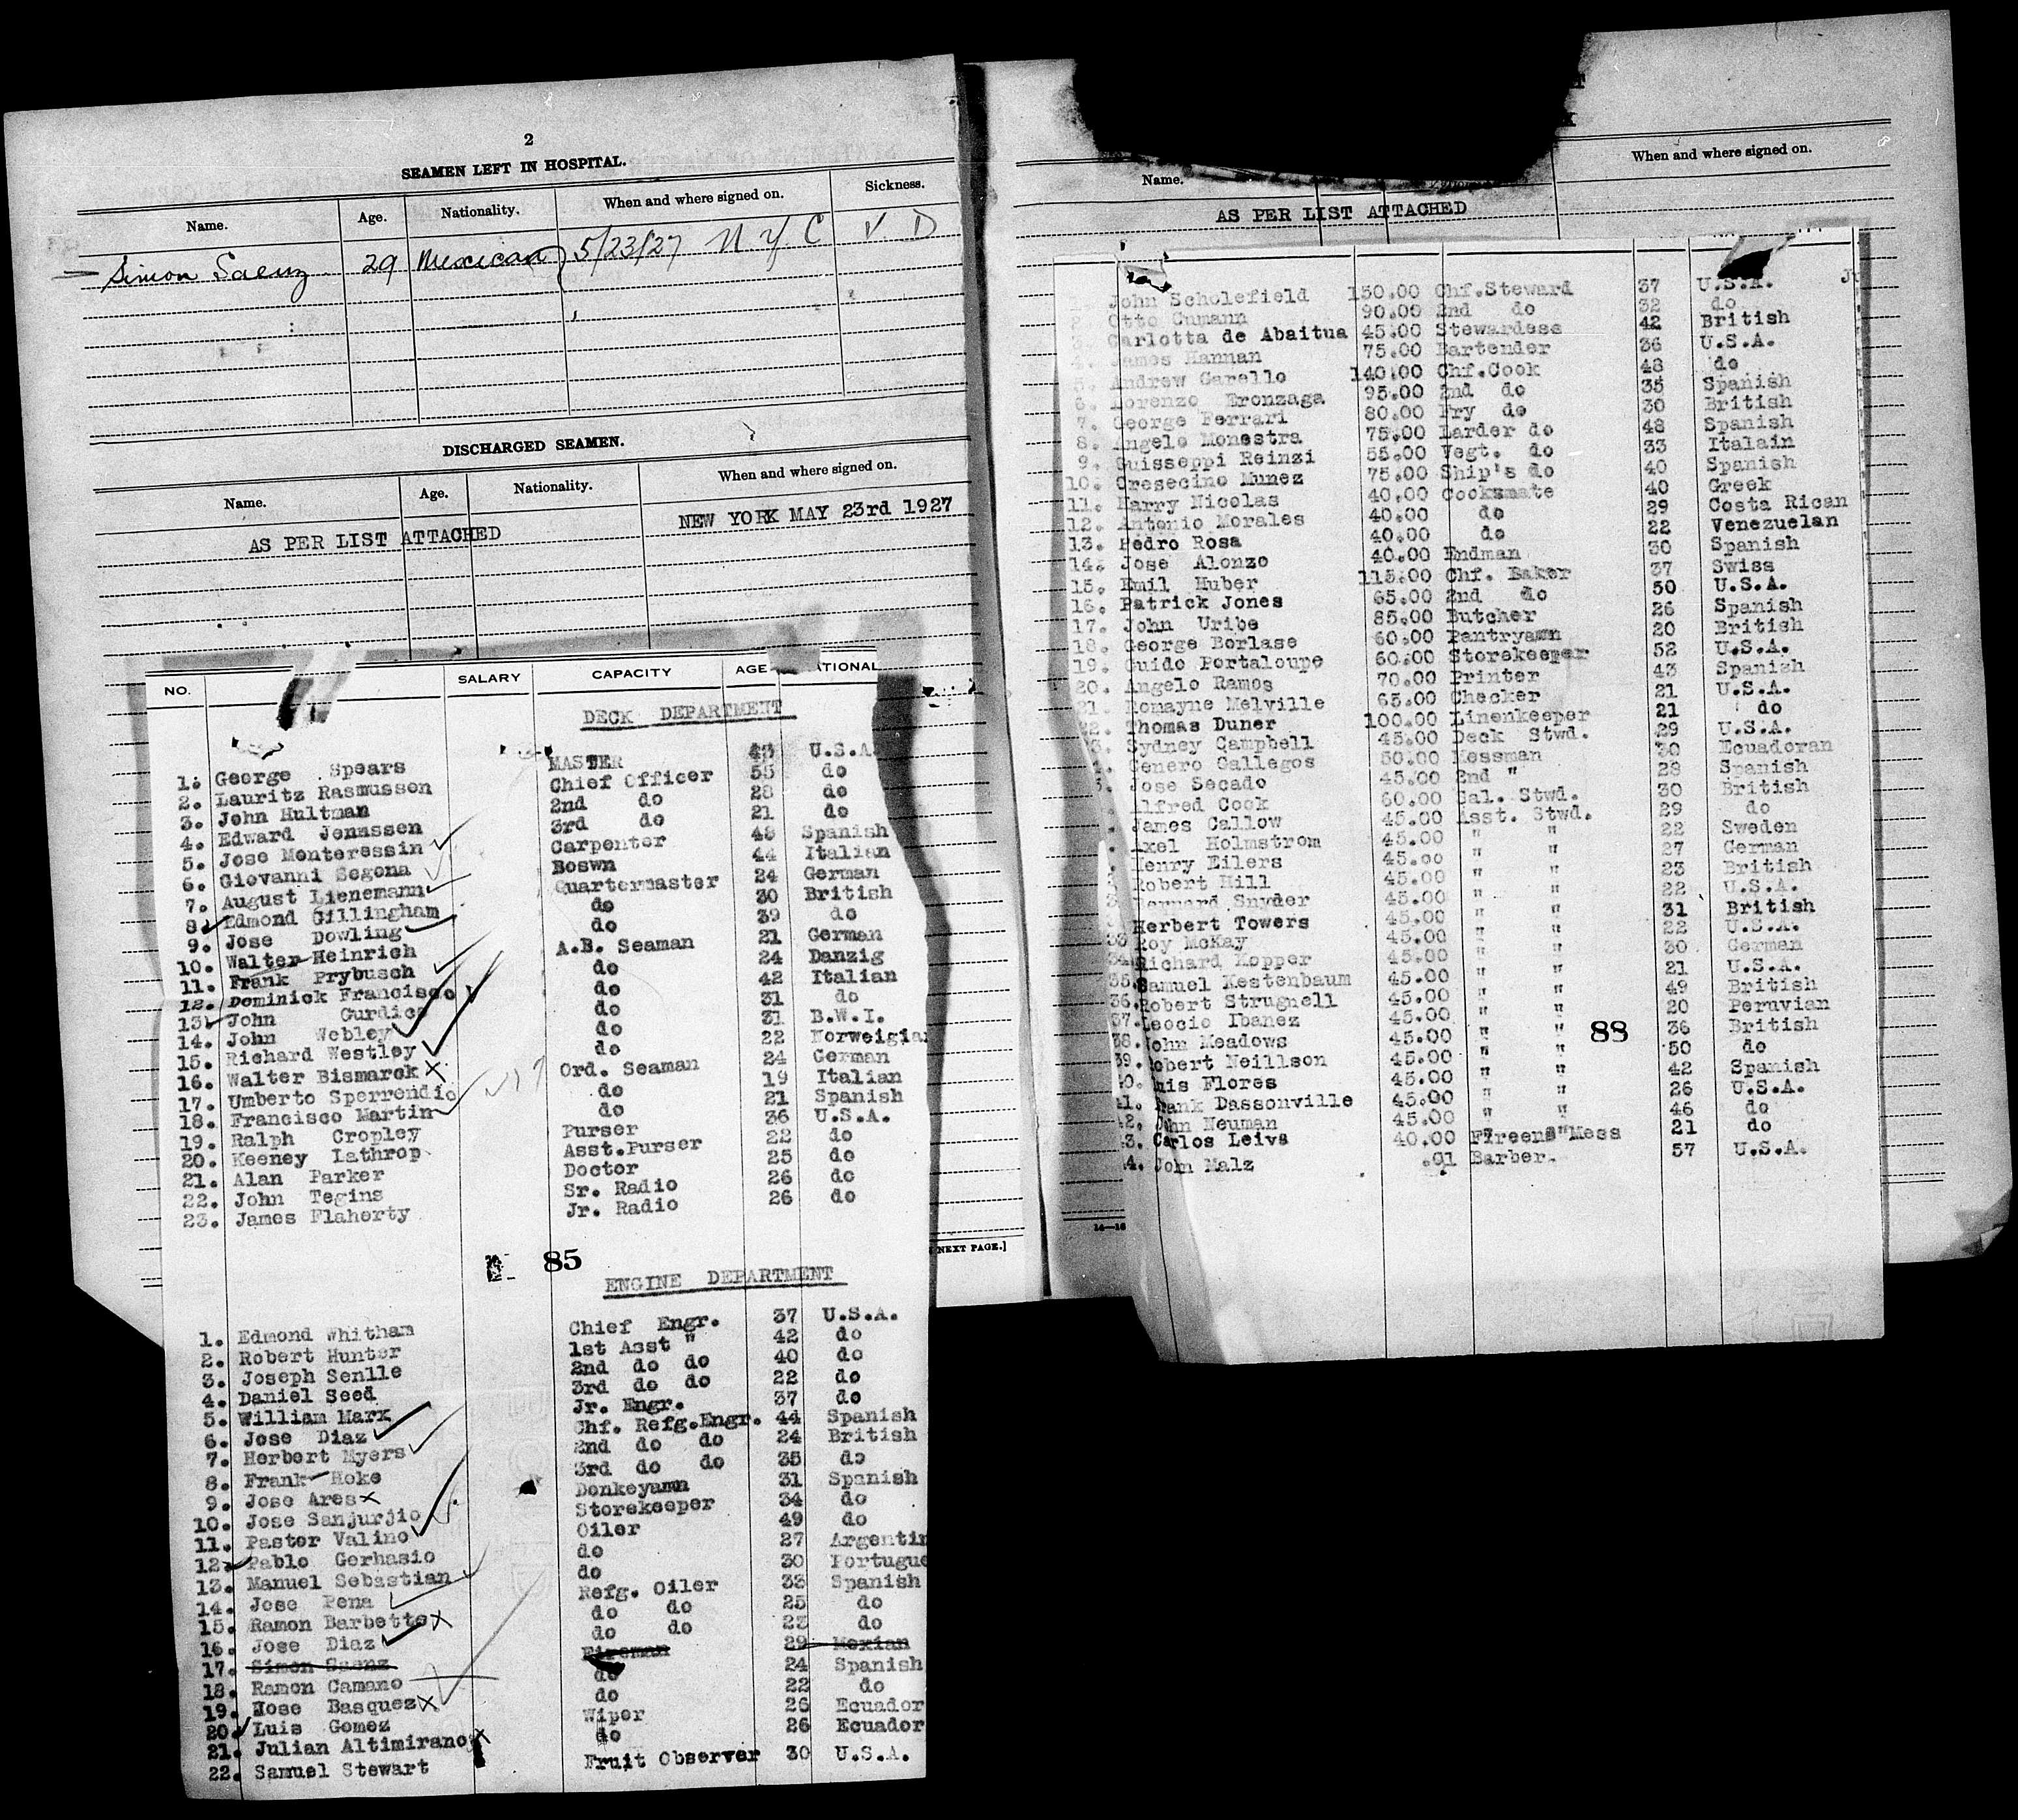 2
SEAMEN LEFT IN HOSPITAL.
Name. Age. Nationality. When and where signed on. Sickness.
Simon Saenz 29 Mexican 5/23/27 N Y C V D
DISCHARGED SEAMEN.
Name. Age. Nationality. When and where signed on.
AS PER LIST ATTACHED NEW YORK MAY 23rd 1927
NO. SALARY CAPACITY AGE ATIONAL
DECK DEPARTMENT
1. George Spears MASTER 43 U.S.A.
2. Lauritz Rasmussen Chief Officer 55 do
3. John Hultman 2nd do 28 do
4. Edward Jenassen 3rd do 21 do
5. Jose Monteressin Carpenter 48 Spanish
6. Giovanni Segona Boswn 44 Italian
7. August Lienemann Quartermaster 24 German
8. Edmond Gillingham do 30 British
9. Jose Dowling do 39 do
10. Walter Heinrich A.B. Seaman 21 German
11. Frank Prybusch do 24 Danzig
12. Dominick Francisco do 42 Italian
13. John Curdico do 31 do
14. John Webley do 31 B.W.I.
15. Richard Westley do 22 Norweigia
16. Walter Bismarck Ord. Seaman 24 German
17. Umberto Sperrendio do 19 Italian
18. Francisco Martin do 21 Spanish
19. Ralph Cropley Purser 36 U.S.A.
20. Keeney Lathrop Asst.Purser 22 do
21. Alan Parker Doctor 25 do
22. John Tegins Sr. Radio 26 do
23. James Flaherty Jr. Radio 26 do
85
NEXT PAGE.]
ENGINE DEPARTMENT
1. Edmond Whitham Chief Engr. 37 U.S.A.
2. Robert Hunter 1st Asst " 42 do
3. Joseph Senlle 2nd do do 40 do
4. Daniel Seed 3rd do do 22 do
5. William Marx Jr. Engr. 37 do
6. Jose Diaz Chf. Refg.Engr. 44 Spanish
7. Herbert Myers 2nd do do 24 British
8. Frank Hoke 3rd do do 35 do
9. Jose Ares Donkeyamn 31 Spanish
10. Jose Sanjurjio Storekeeper 34 do
11. Pastor Valino Oiler 49 do
12. Pablo Gerhasio do 27 Argentin
13. Manuel Sebastian do 30 Portugue
14. Jose Pena Refg. Oiler 33 Spanish
15. Ramon Barbetto do do 25 do
16. Jose Diaz do do 23 do
17. Simon Saenz Fireman 29 Mexian
18. Ramon Camano do 24 Spanish
19. Hose Basquez do 22 do
20. Luis Gomez Wiper 26 Ecuador
21. Julian Altimirano do 26 Ecuador
22. Samuel Stewart Fruit Observer 30 U.S.A.
Name. When and where signed on.
AS PER LIST ATTACHED
John Scholefield 150.00 Chf.Steward 37 U.S.A.
2. Otto Cumann 90.00 2nd do 32 do
3. Carlotta de Abaitua 45.00 Stewardess 42 British
4. James Hannan 75.00 Bartender 36 U.S.A.
5. Andrew Garello 140.00 Chf.Cook 48 do
6. Lorenzo Eronzaga 95.00 2nd do 35 Spanish
7. George Ferrari 80.00 Fry do 30 British
8. Angelo Monestra 75.00 Larder do 48 Spanish
9. Guisseppi Reinzi 55.00 Vegt. do 33 Italain
10. Cresecino Munez 75.00 Ship's do 40 Spanish
11. Harry Nicolas 40.00 Cooksmate 40 Greek
12. Antonio Morales 40.00 do 29 Costa Rican
13. Pedro Rosa 40.00 do 22 Venezuelan
14. Jose Alonzo 40.00 Endman 30 Spanish
15. Emil Huber 115.00 Chf. Baker 37 Swiss
16. Patrick Jones 65.00 2nd do 50 U.S.A.
17. John Uribe 85.00 Butcher 26 Spanish
18. George Borlase 60.00 Pantryamn 20 British
19. Guido Portaloupe 60.00 Storekeeper 52 U.S.A.
20. Angelo Ramos 70.00 Printer 43 Spanish
21. Romayne Melville 65.00 Checker 21 U.S.A.
22. Thomas Duner 100.00 Linenkeeper 21 do
3. Sydney Campbell 45.00 Deck Stwd. 29 U.S.A.
Genero Gallegos 50.00 Messman 30 Ecuadoran
5. Jose Secado 45.00 2nd " 28 Spanish
lfred Cook 60.00 Gal. Stwd. 30 British
James Callow 45.00 Asst. Stwd. 29 do
Axel Holmstrom 45.00 " " 22 Sweden
Henry Eilers 45.00 " " 27 German
Robert Hill 45.00 " " 23 British
Bernard Snyder 45.00 " " 22 U.S.A.
Herbert Towers 45.00 " " 31 British
33 Roy McKay 45.00 " " 22 U.S.A.
34. Richard Kopper 45.00 " " 30 German
35. Samuel Kestenbaum 45.00 " " 21 U.S.A.
36. Robert Strugnell 45.00 " " 49 British
37. Leocio Ibanez 45.00 " " 20 Peruvian
38. John Meadows 45.00 " " 36 British
88
39. obert Neillson 45.00 " " 50 do
40. uis Flores 45.00 " " 42 Spanish
41. rank Dassonville 45.00 " " 26 U.S.A.
42. John Neuman 45.00 " " 46 do
43. Carlos Leiva 40.00 Fireens"Mess 21 do
4. John Malz .01 Barber. 57 U.S.A.